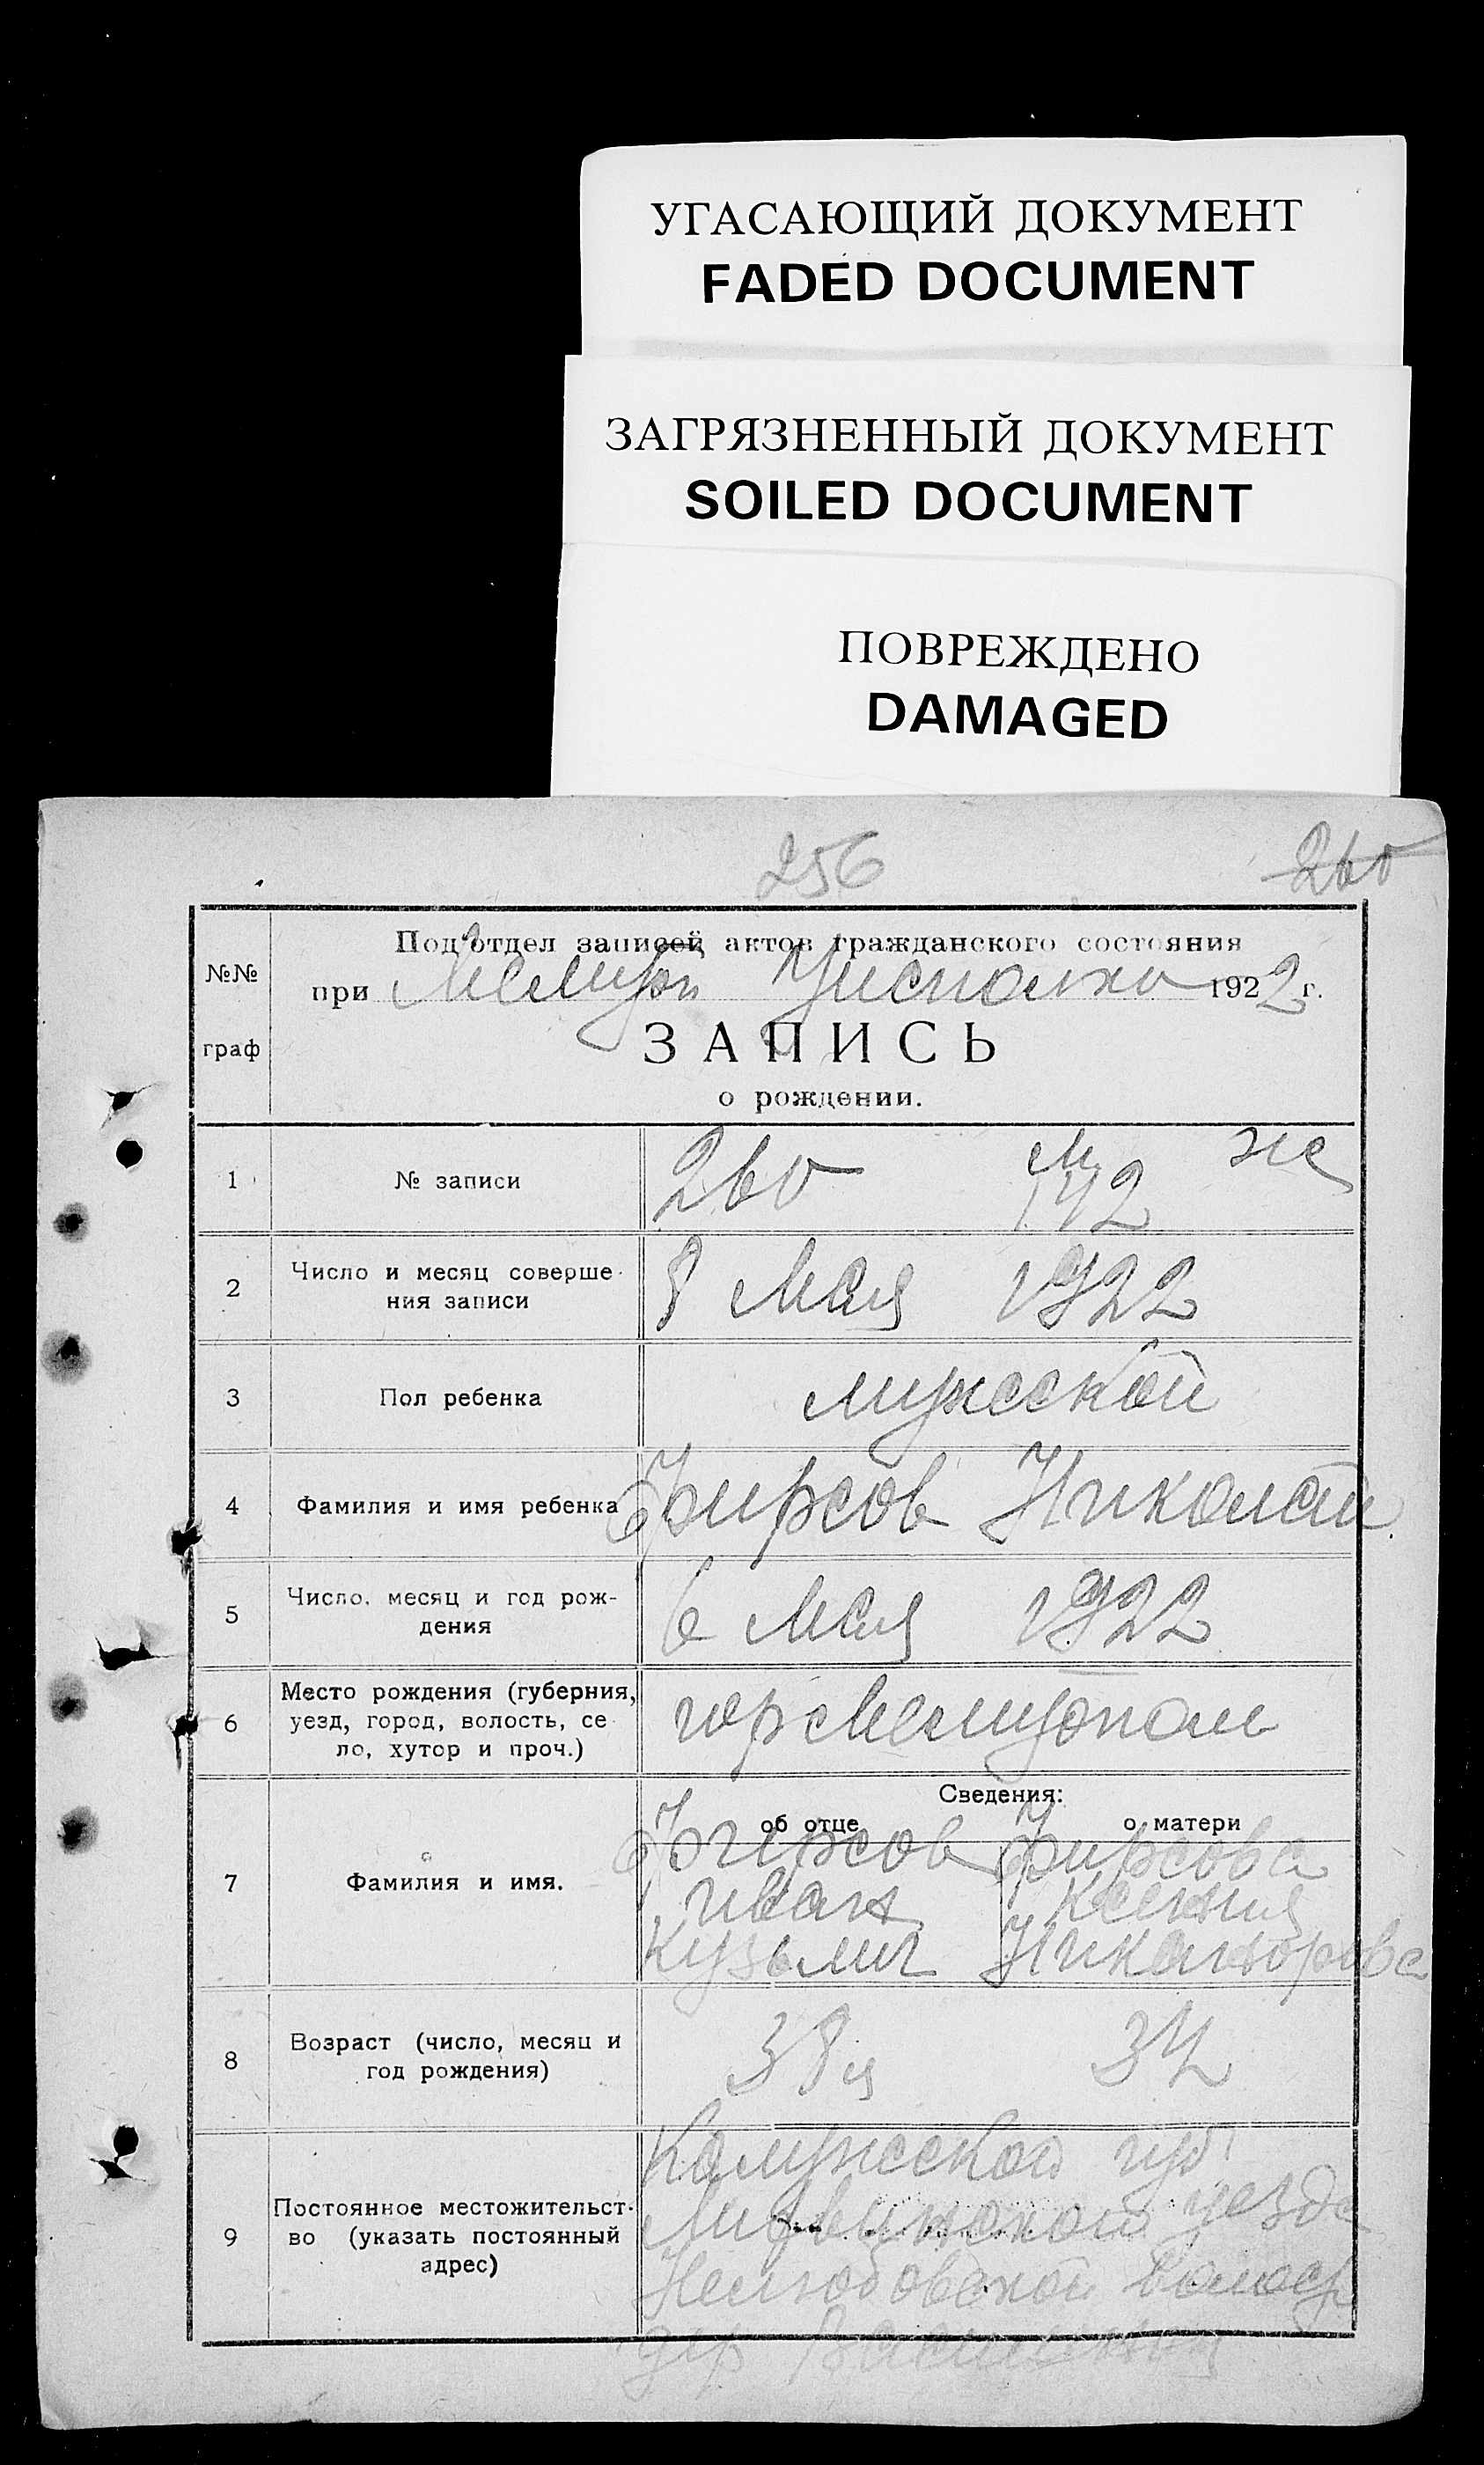 УГАСАЮЩИЙ ДОКУМЕНТ
FADED DOCUMENT
ЗАГРЯЗНЕННЫЙ ДОКУМЕНТ
SOILED DOCUMENT
ПОВРЕЖДЕНО
DAMAGED
256 260
№№ граф
Под'отдел записей актов гражданского состояния
при Мелит Уисполко 1922 г.
ЗАПИСЬ
о рождении.
1 № записи 260 м 142 же
2 Число и месяц соверше-
ния записи
8 Мая 1922
3 Пол ребенка мужской
4 Фамилия и имя ребенка Фирсов Николай
5 Число, месяц и год рож-
дения
6 Мая 1922
6 Место рождения (губерния,
уезд, город, волость, се-
ло, хутор и проч.)
гор Мелитополь
Сведения:
об отце о матери
7 Фамилия и имя.
Фирсов Фирсова
Иван Ксения
Кузьмич Никанорова
8 Возраст (число, месяц и
год рождения)
38 34
9 Постоянное местожительст-
во (указать постоянный
адрес)
Калужской губ
уезда
волост
дер